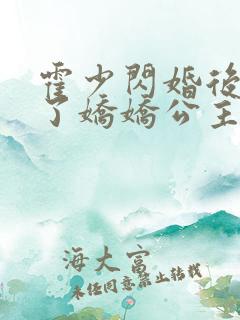 霍少閃婚後
了嬌嬌公主
海大富
未经同意禁止转载